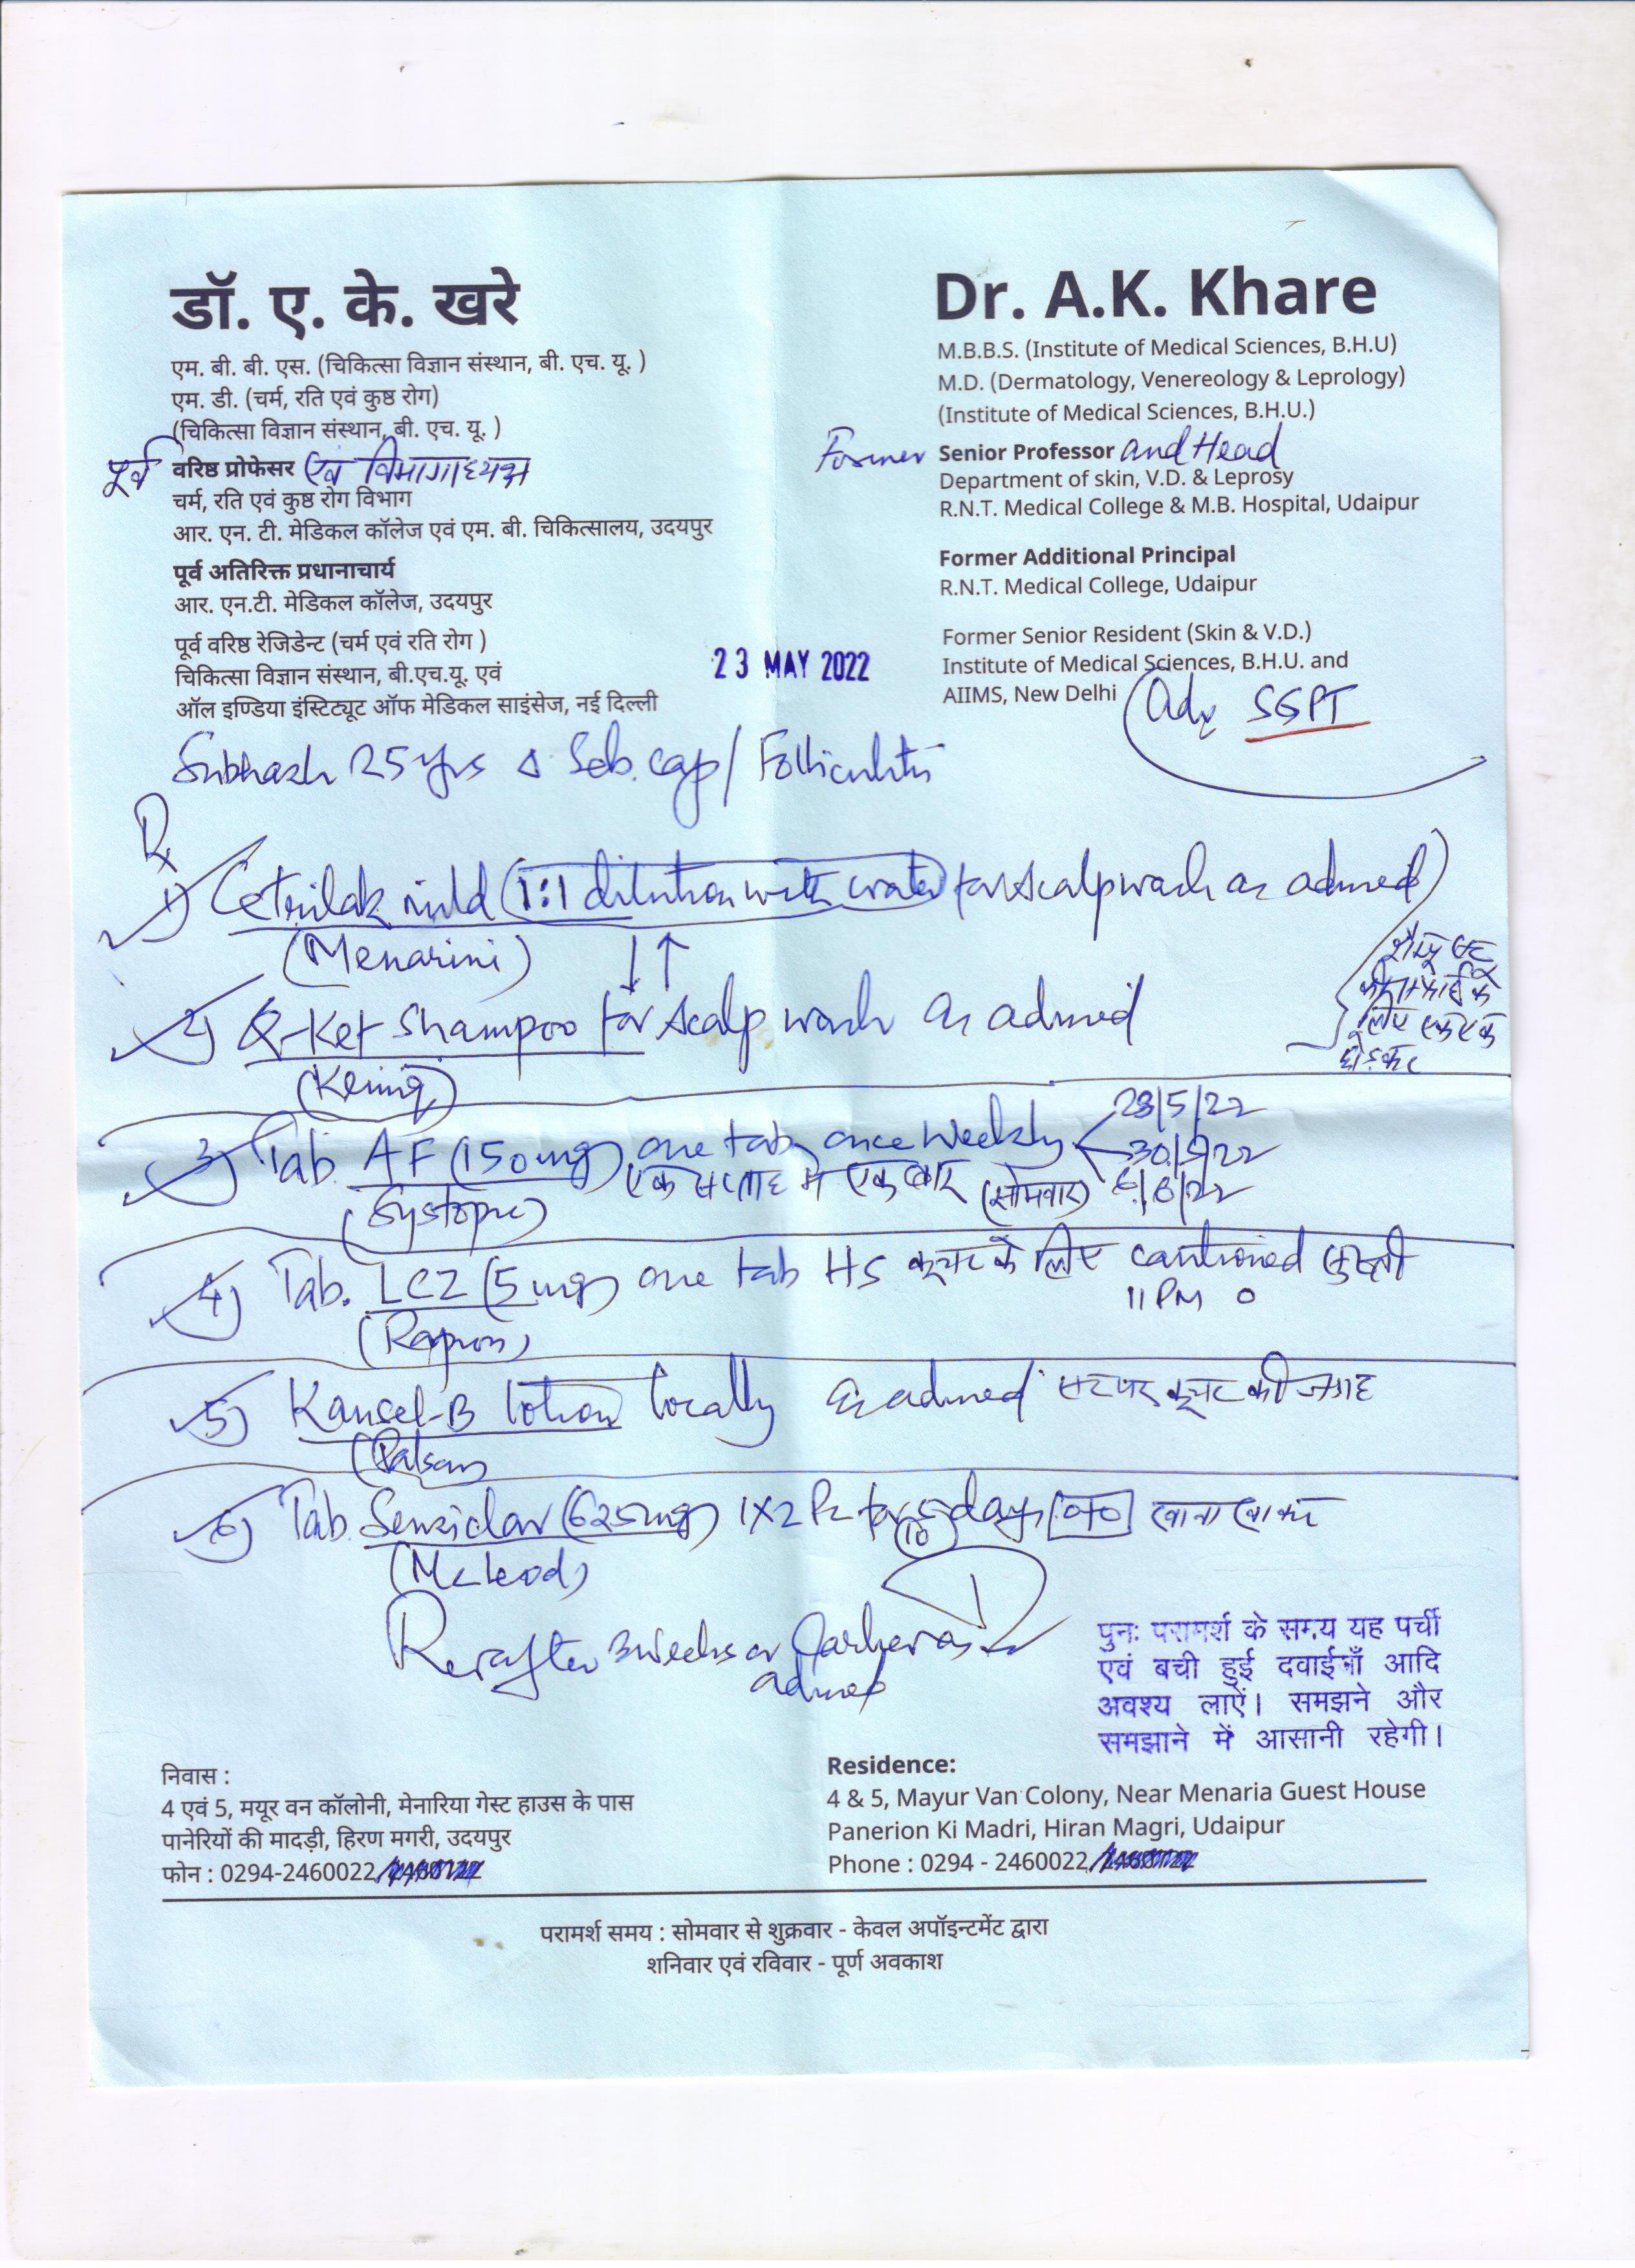 डॉ. ए. के. खरे
एम. बी. बी. एस. (चिकित्सा विज्ञान संस्थान, बी. एच. यू. )
एम. डी. (चर्म, रति एवं कुष्ठ रोग)
(चिकित्सा विज्ञान संस्थान, बी. एच. यू. )
पूर्व वरिष्ठ प्रोफेसर एवं विभागाध्यक्ष
चर्म, रति एवं कुष्ठ रोग विभाग
आर. एन. टी. मेडिकल कॉलेज एवं एम. बी. चिकित्सालय, उदयपुर
पूर्व अतिरिक्त प्रधानाचार्य
आर. एन.टी. मेडिकल कॉलेज, उदयपुर
पूर्व वरिष्ठ रेजिडेन्ट (चर्म एवं रति रोग )
चिकित्सा विज्ञान संस्थान, बी.एच.यू. एवं
ऑल इण्डिया इंस्टिट्यूट ऑफ मेडिकल साइंसेज, नई दिल्ली
Dr. A.K. Khare
M.B.B.S. (Institute of Medical Sciences, B.H.U)
M.D. (Dermatology, Venereology & Leprology)
(Institute of Medical Sciences, B.H.U.)
Former Senior Professor and Head
Department of skin, V.D. & Leprosy
R.N.T. Medical College & M.B. Hospital, Udaipur
Former Additional Principal
R.N.T. Medical College, Udaipur
Former Senior Resident (Skin & V.D.)
Institute of Medical Sciences, B.H.U. and
AIIMS, New Delhi
23 MAY 2022
Adv SGPT
Subhash 25 yrs Δ Seb. cap / Folliculitis
Rx
1) Cetrilak mild (1:1 dilution with water) for scalp wash as advised
(Menarini) ↓↑
2) Q-Ket Shampoo for scalp wash as advised
3) Tab. AF (150mg) one tab once weekly 23/5/22
30/5/22
एक सप्ताह में एक बार (सोमवार) 6/6/22
(Systopic)
4) Tab. LCZ (5mg) one tab HS के लिए cautioned सुस्ती
11 PM 0
5) Kansel-B lotion locally as advised सर पर की जगह
6) Tab. (625mg) 1x2 Pc for 5 days 0+0 खाना खाकर
(10)
(McLeod)
R after 3 weeks or earlier as
advised
पुनः परामर्श के समय यह पर्ची
एवं बची हुई दवाईयाँ आदि
अवश्य लाऐं। समझने और
समझाने में आसानी रहेगी।
निवास :
4 एवं 5, मयूर वन कॉलोनी, मेनारिया गेस्ट हाउस के पास
पानेरियों की मादड़ी, हिरण मगरी, उदयपुर
फोन : 0294-2460022
Residence:
4 & 5, Mayur Van Colony, Near Menaria Guest House
Panerion Ki Madri, Hiran Magri, Udaipur
Phone : 0294 - 2460022
परामर्श समय : सोमवार से शुक्रवार - केवल अपॉइन्टमेंट द्वारा
शनिवार एवं रविवार - पूर्ण अवकाश